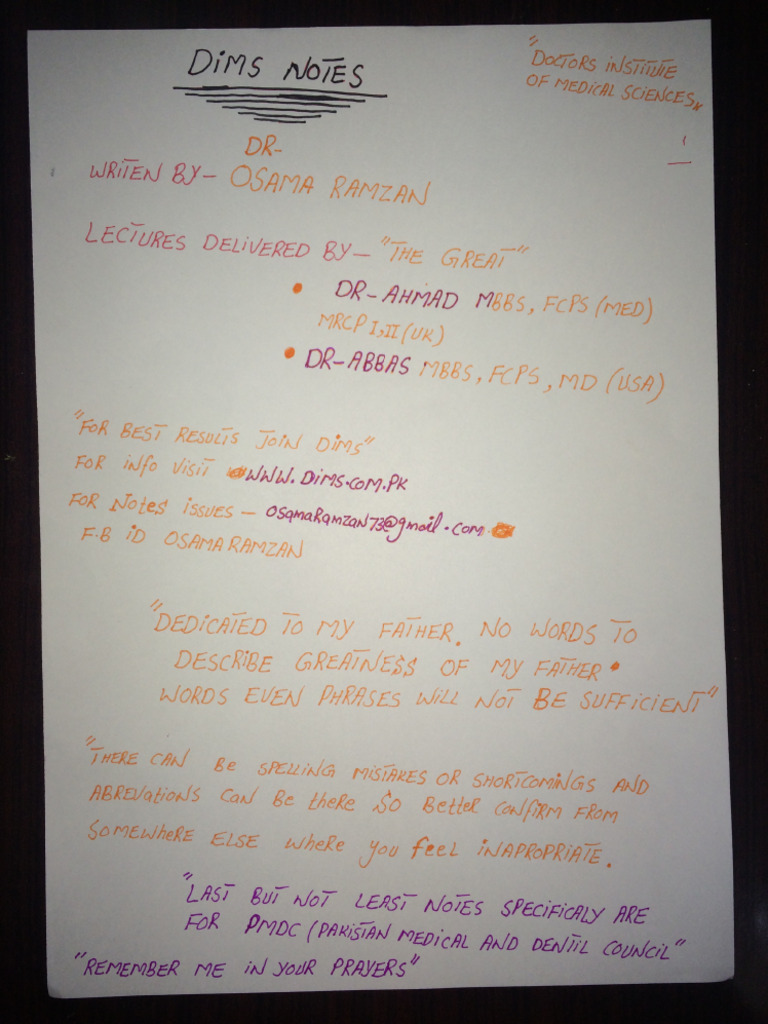 DIMS NOTES
"DOCTORS INSTITUTE
OF MEDICAL SCIENCES"
1
DR-
WRITEN BY- OSAMA RAMZAN
LECTURES DELIVERED BY- "THE GREAT"
• DR-AHMAD MBBS, FCPS (MED)
MRCP I,II (UK)
• DR-ABBAS MBBS, FCPS, MD (USA)
"FOR BEST RESULTS JOIN DIMS"
FOR info VISIT WWW.DIMS.COM.PK
FOR NOTES ISSUES - OSAMARAMZAN73@gmail.com
F.B ID OSAMA RAMZAN
"DEDICATED TO MY FATHER. NO WORDS TO
DESCRIBE GREATNESS OF MY FATHER.
WORDS EVEN PHRASES WILL NOT BE SUFFICIENT"
"THERE CAN BE SPELLING MISTAKES OR SHORTCOMINGS AND
ABREVATIONS CAN BE there SO BETTER CONFIRM FROM
SOMEWHERE ELSE where you feel INAPROPRIATE.
"LAST BUT NOT LEAST NOTES SPECIFICALY ARE
FOR PMDC (PAKISTAN MEDICAL AND DENTIL COUNCIL"
"REMEMBER ME IN YOUR PRAYERS"